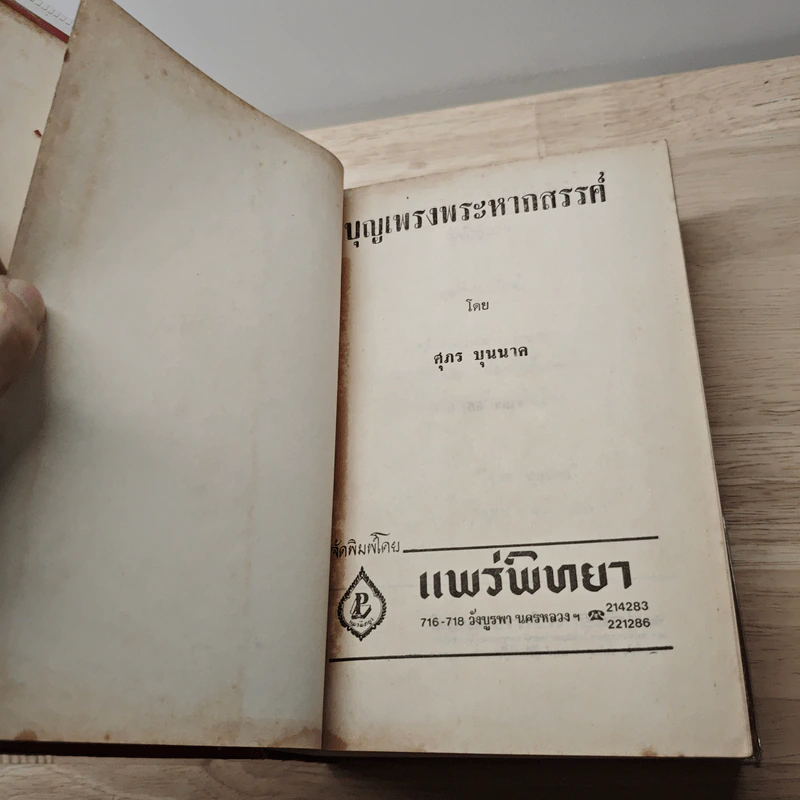 บุญเพรงพระหากสรรค์
โดย
ศุภร บุนนาค
จัดพิมพ์โดย
แพร่พิทยา
716-718 วังบูรพา นครหลวง ฯ ☎ 214283
221286